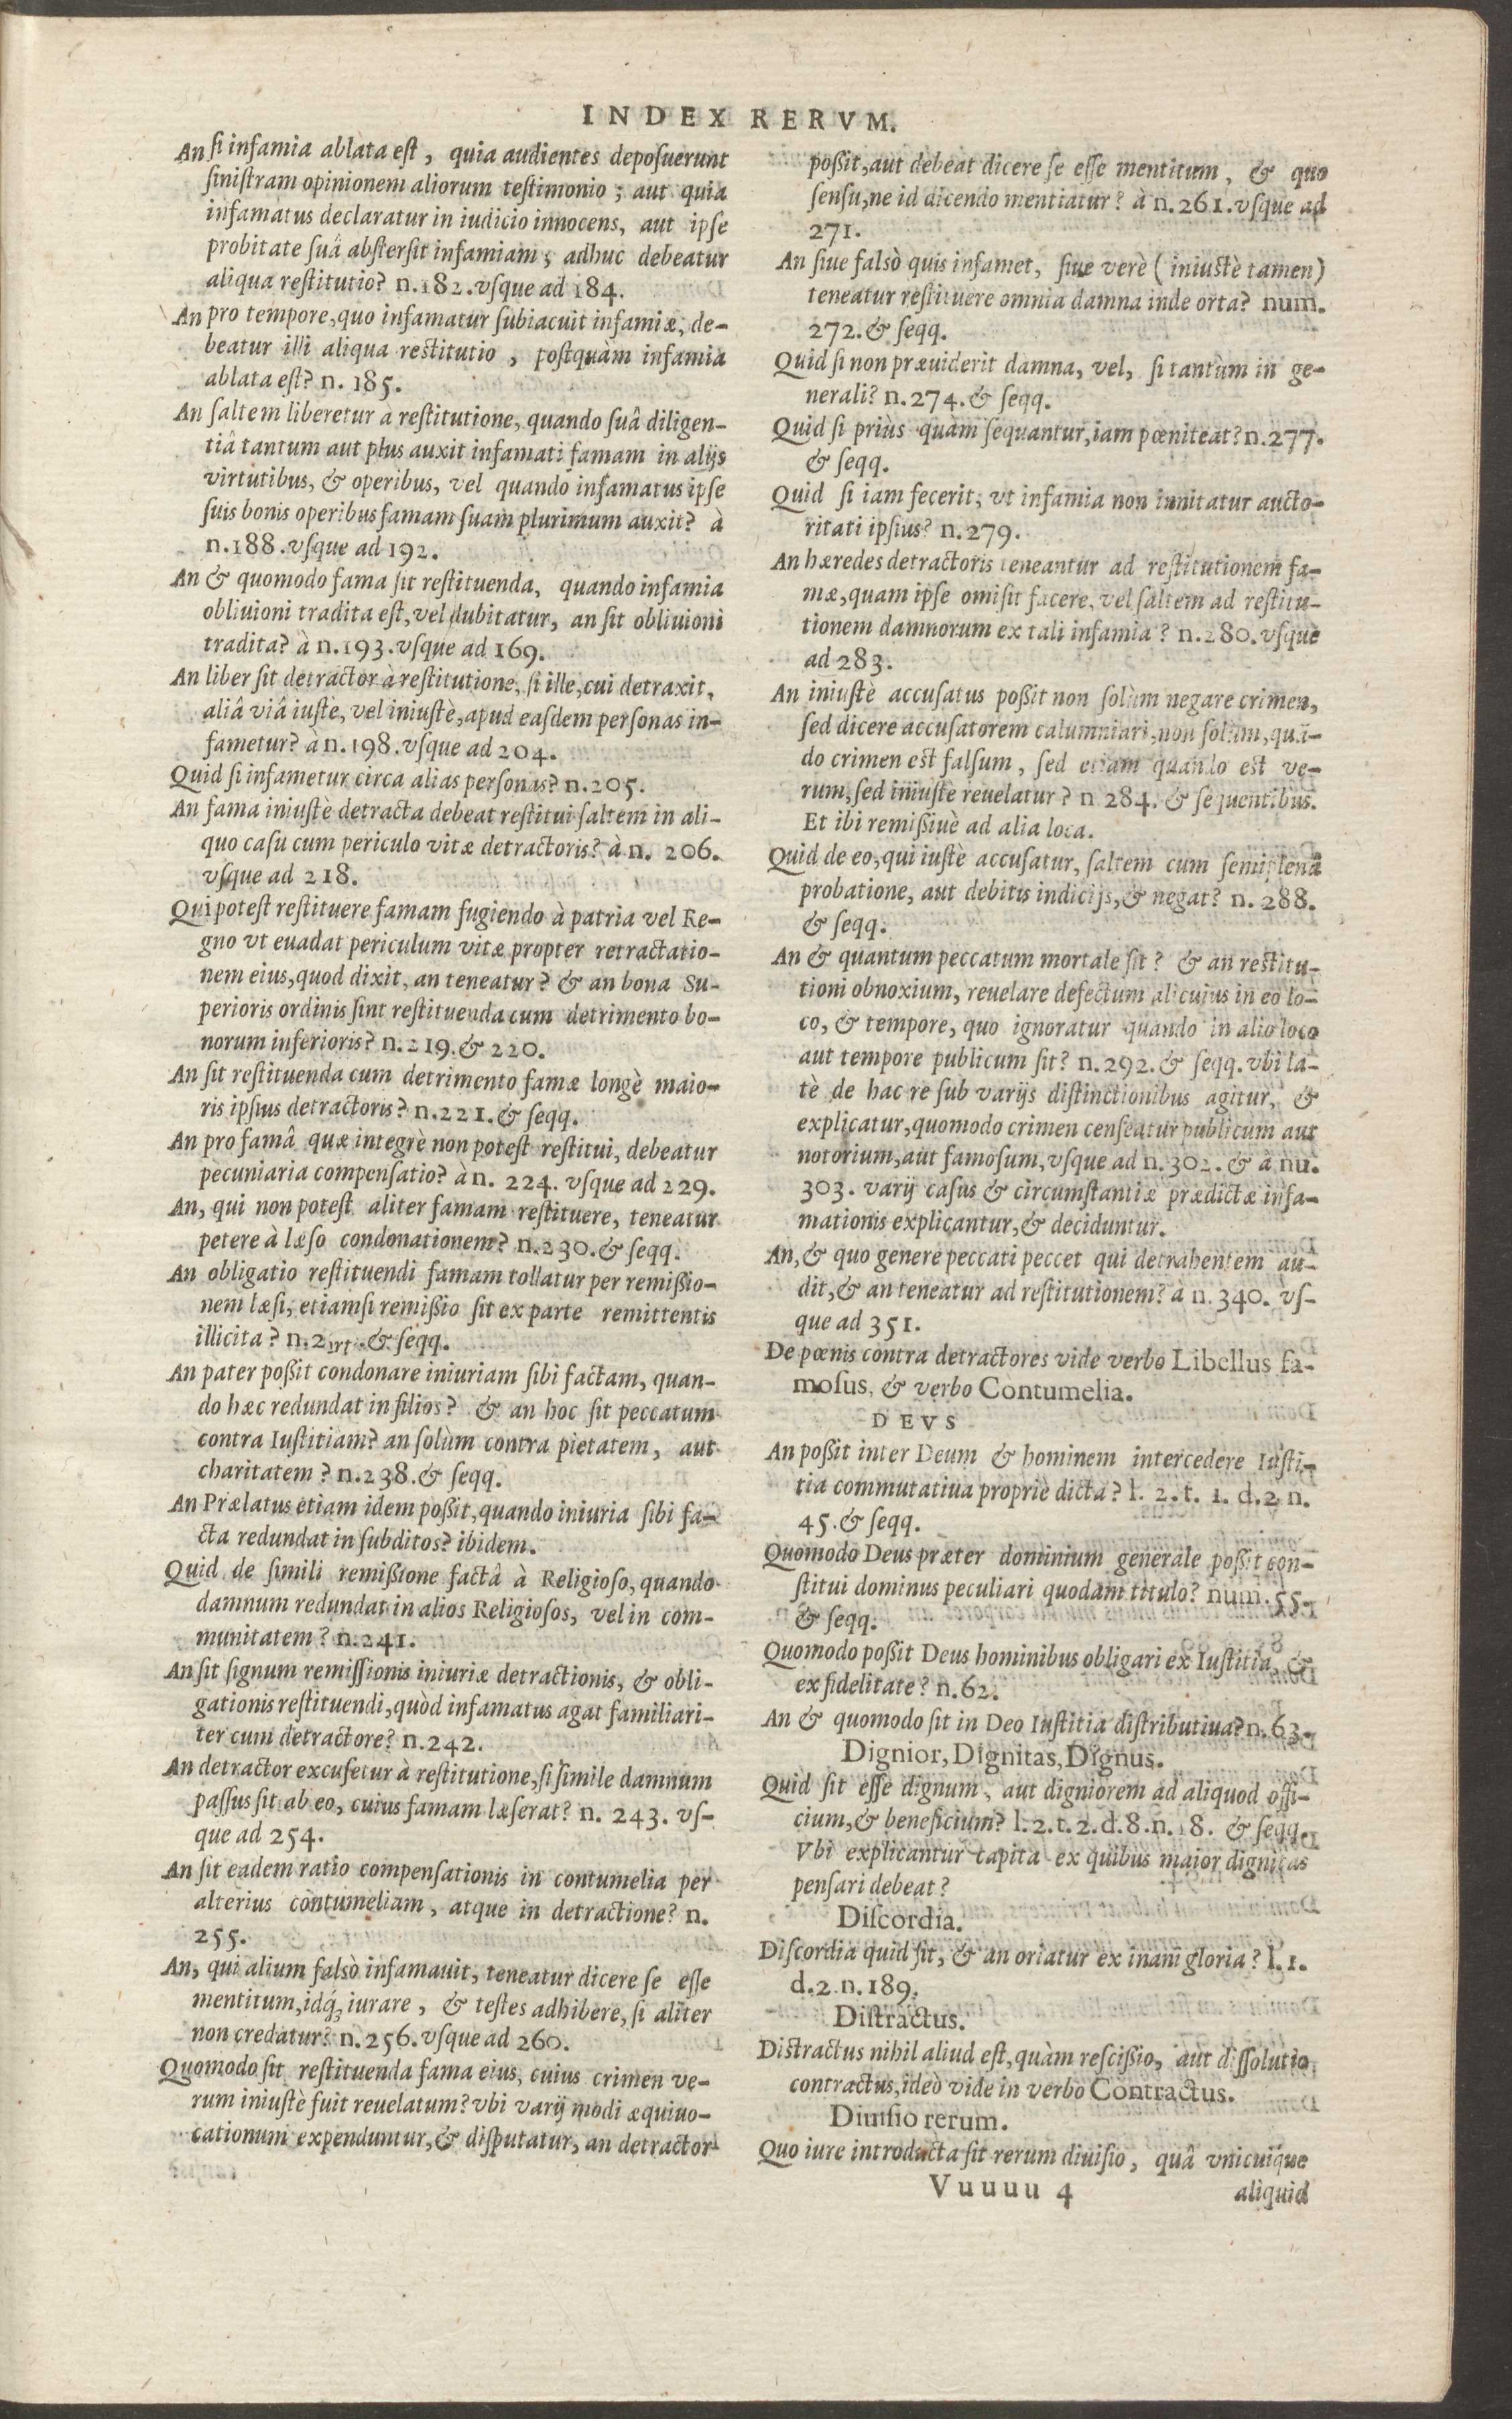 INDEX RERVM.
An si infamia ablata est, quia audientes deposuerunt
sinistram opinionem aliorum testimonio; aut quia
infamatus declaratur in iudicio innocens, aut ipse
probitate suâ abstersit infamiam; adhuc debeatur
aliqua restitutio? n.182.vsque ad 184.
An pro tempore, quo infamatur subiacuit infamiæ, de-
beatur illi aliqua restitutio, postquàm infamia
ablata est? n. 185.
An saltem liberetur a restitutione, quando suâ diligen-
tiâ tantum aut plus auxit infamati famam in alijs
virtutibus, & operibus, vel quando infamatus ipse
suis bonis operibus famam suam plurimum auxit? à
n.188.vsque ad 192.
An & quomodo fama sit restituenda, quando infamia
obliuioni tradita est, vel dubitatur, an sit obliuioni
tradita? à n.193.vsque ad 169.
An liber sit detractor à restitutione, si ille, cui detraxit,
aliâ viâ iustè, vel iniustè, apud easdem personas in-
fametur? à n.198.vsque ad 204.
Quid si infametur circa alias personas? n.205.
An fama iniustè detracta debeat restitui saltem in ali-
quo casu cum periculo vitæ detractoris? à n. 206.
vsque ad 218.
Qui potest restituere famam fugiendo à patria vel Re-
gno vt euadat periculum vitæ propter retractatio-
nem eius, quod dixit, an teneatur? & an bona Su-
perioris ordinis sint restituenda cum detrimento bo-
norum inferioris? n.219.& 220.
An sit restituenda cum detrimento famæ longè maio-
ris ipsius detractoris? n.221.& seqq.
An pro famâ quæ integrè non potest restitui, debeatur
pecuniaria compensatio? à n. 224. vsque ad 229.
An, qui non potest aliter famam restituere, teneatur
petere à læso condonationem? n.230.& seqq.
An obligatio restituendi famam tollatur per remißio-
nem læsi, etiamsi remißio sit ex parte remittentis
illicita? n.2 & seqq.
An pater poßit condonare iniuriam sibi factam, quan-
do hæc redundat in filios? & an hoc sit peccatum
contra Iustitiam? an solùm contra pietatem, aut
charitatem? n.238.& seqq.
An Prælatus etiam idem poßit, quando iniuria sibi fa-
cta redundat in subditos? ibidem.
Quid de simili remißione factâ à Religioso, quando
damnum redundat in alios Religiosos, vel in com-
munitatem? n.241.
An sit signum remissionis iniuriæ detractionis, & obli-
gationis restituendi, quòd infamatus agat familiari-
ter cum detractore? n.242.
An detractor excusetur à restitutione, si simile damnum
passus sit ab eo, cuius famam læserat? n. 243. vs-
que ad 254.
An sit eadem ratio compensationis in contumelia per
alterius contumeliam, atque in detractione? n.
255.
An, qui alium falsò infamauit, teneatur dicere se esse
mentitum, idq́; iurare, & testes adhibere, si aliter
non credatur? n.256.vsque ad 260.
Quomodo sit restituenda fama eius, cuius crimen ve-
rum iniustè fuit reuelatum? vbi varij modi æquiuo-
cationum expenduntur, & disputatur, an detractor
poßit, aut debeat dicere se esse mentitum, & quo
sensu, ne id dicendo mentiatur? à n.261.vsque ad
271.
An siue falsò quis infamet, siue verè (iniustè tamen)
teneatur restituere omnia damna inde orta? num.
272.& seqq.
Quid si non præuiderit damna, vel, si tantùm in ge-
nerali? n.274.& seqq.
Quid si priùs quàm sequantur, iam pœniteat? n.277.
& seqq.
Quid si iam fecerit, vt infamia non innitatur aucto-
ritati ipsius? n.279.
An hæredes detractoris teneantur ad restitutionem fa-
mæ, quam ipse omisit facere, vel saltem ad restitu-
tionem damnorum ex tali infamia? n.280.vsque
ad 283.
An iniustè accusatus poßit non solùm negare crimen,
sed dicere accusatorem calumniari, non solùm, quã-
do crimen est falsum, sed etiam quando est ve-
rum, sed iniustè reuelatur? n 284. & sequentibus.
Et ibi remißiuè ad alia loca.
Quid de eo, qui iustè accusatur, saltem cum semiplenâ
probatione, aut debitis indicijs, & negat? n. 288.
& seqq.
An & quantum peccatum mortale sit? & an restitu-
tioni obnoxium, reuelare defectum alicuius in eo lo-
co, & tempore, quo ignoratur quando in alio loco
aut tempore publicum sit? n.292.& seqq. vbi la-
tè de hac re sub varijs distinctionibus agitur, &
explicatur, quomodo crimen censeatur publicum aut
notorium, aut famosum, vsque ad n.302. & à nu.
303. varij casus & circumstantiæ prædictæ infa-
mationis explicantur, & deciduntur.
An, & quo genere peccati peccet qui detrahentem au-
dit, & an teneatur ad restitutionem? à n.340. vs-
que ad 351.
De pœnis contra detractores vide verbo Libellus fa-
mosus, & verbo Contumelia.
DEVS
An poßit inter Deum & hominem intercedere Iusti-
tia commutatiua propriè dicta? l. 2.t. 1. d.2 n.
45.& seqq.
Quomodo Deus præter dominium generale poßit con-
stitui dominus peculiari quodam titulo? num.55.
& seqq.
Quomodo poßit Deus hominibus obligari ex Iustitia, &
ex fidelitate? n.62.
An & quomodo sit in Deo Iustitia distributiua? n.63.
Dignior, Dignitas, Dignus.
Quid sit esse dignum, aut digniorem ad aliquod offi-
cium, & beneficium? l.2.t.2.d.8.n.18. & seqq.
Vbi explicantur capita ex quibus maior dignitas
pensari debeat?
Discordia.
Discordia quid sit, & an oriatur ex inani gloria? l.1.
d.2.n.189.
Distractus.
Distractus nihil aliud est, quàm rescißio, aut dissolutio
contractus, ideò vide in verbo Contractus.
Diuisio rerum.
Quo iure introducta sit rerum diuisio, quâ vnicuique
Vuuuu 4
aliquid